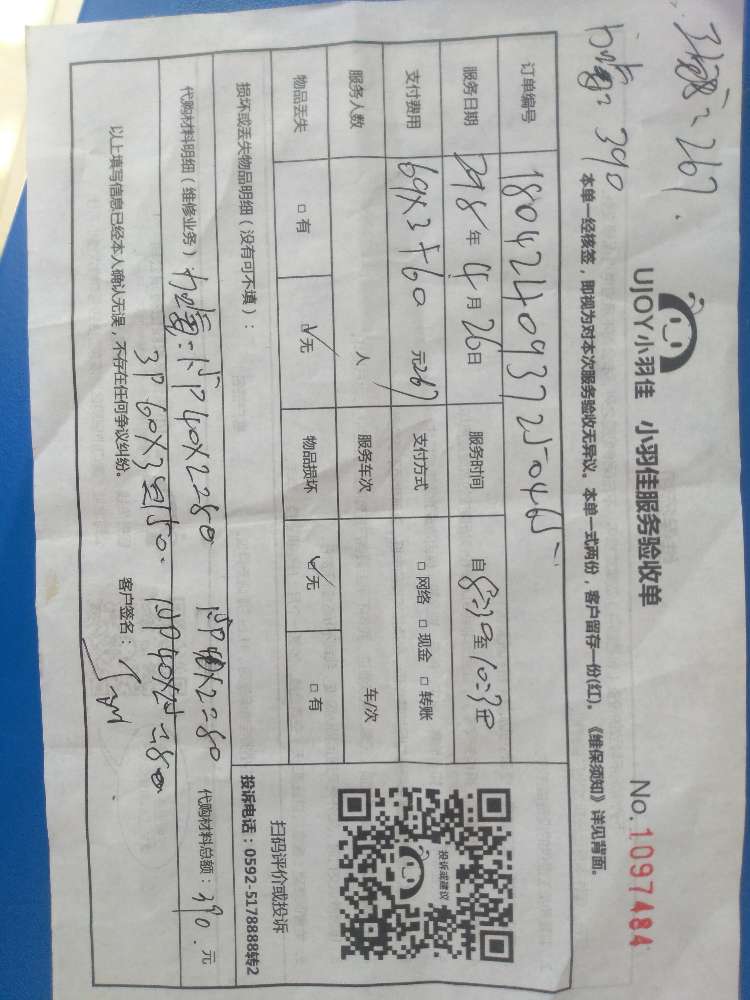 =267.
=390
UJOY小羽佳 小羽佳服务验收单
No.1097484
本单一经核签，即视为对本次服务验收无异议。本单一式两份，客户留存一份(红)。《维保须知》详见背面。
订单编号 1804240937250465
服务日期 2018年4月26日 服务时间 自8:30至10:30
支付费用 69X3+60 元267 支付方式 □网络 □现金 □转账
服务人数 人 服务车次 车/次
物品丢失 □有 ☑无 物品损坏 ☑无 □有
损坏或丢失物品明细（没有可不填）：
投诉或建议
扫码评价或投诉
投诉电话：0592-5178888转2
代购材料明细（维修业务） 40X2=80 40X2=80 代购材料总额：390.元
3P 60X3 150. 40X2=80
以上填写信息已经本人确认无误，不存在任何争议纠纷。 客户签名：